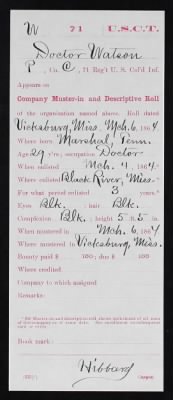 W 71 U.S.C.T.
Doctor Watson
P, Co. C, 71 Reg't U. S. Col'd Inf.
Appears on
Company Muster-in and Descriptive Roll
of the organization named above. Roll dated
Vicksburg, Miss. Mch. 6, 1864
Where born Marshal, Tenn.
Age 29 y'rs; occupation Doctor
When enlisted Mch. 4, 1864.
Where enlisted Black River, Miss.
For what period enlisted 3 years.*
Eyes Blk. ; hair Blk.
Complexion Blk. ; height 5 ft. 5 in.
When mustered in Mch. 6, 1864
Where mustered in Vicksburg, Miss.
Bounty paid $ 100; due $ 100
Where credited
Company to which assigned
Remarks:
Book mark:
Hibbard
Copyist.